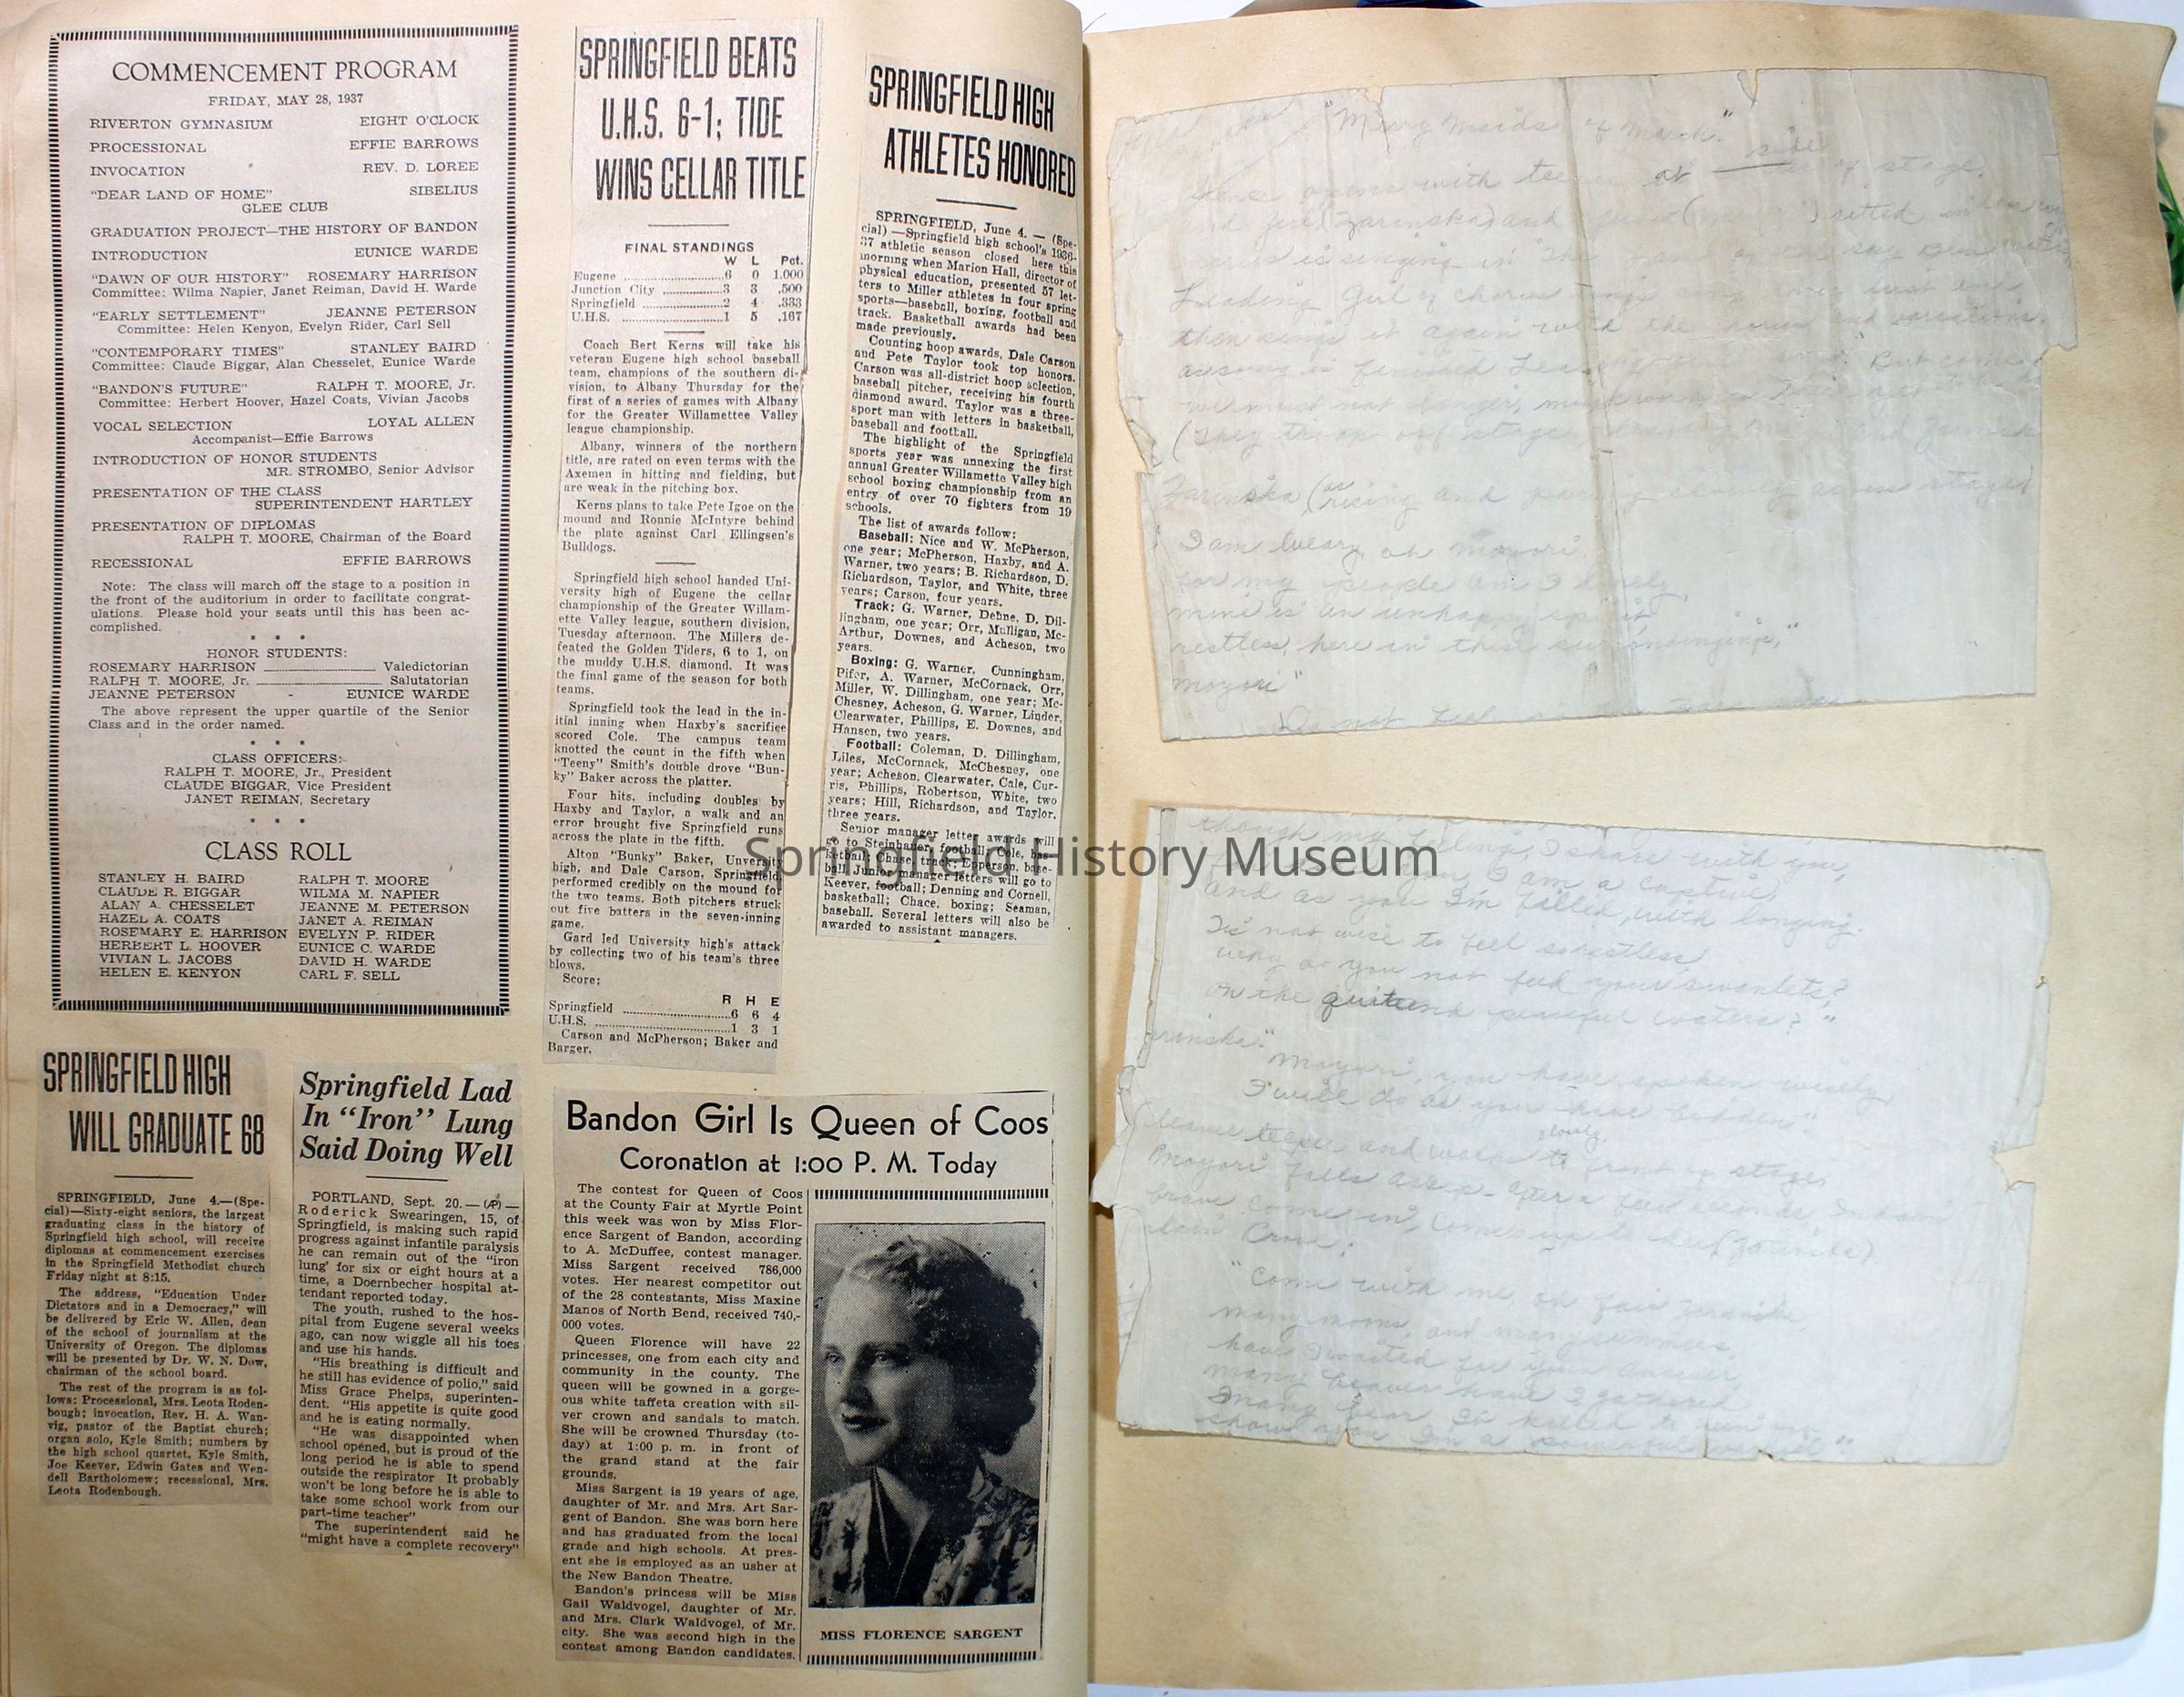 COMMENCEMENT PROGRAM
FRIDAY, MAY 28, 1937
RIVERTON GYMNASIUM EIGHT O'CLOCK
PROCESSIONAL EFFIE BARROWS
INVOCATION REV. D. LOREE
"DEAR LAND OF HOME" SIBELIUS
GLEE CLUB
GRADUATION PROJECT—THE HISTORY OF BANDON
INTRODUCTION EUNICE WARDE
"DAWN OF OUR HISTORY" ROSEMARY HARRISON
Committee: Wilma Napier, Janet Reiman, David H. Warde
"EARLY SETTLEMENT" JEANNE PETERSON
Committee: Helen Kenyon, Evelyn Rider, Carl Sell
"CONTEMPORARY TIMES" STANLEY BAIRD
Committee: Claude Biggar, Alan Chesselet, Eunice Warde
"BANDON'S FUTURE" RALPH T. MOORE, Jr.
Committee: Herbert Hoover, Hazel Coats, Vivian Jacobs
VOCAL SELECTION LOYAL ALLEN
Accompanist—Effie Barrows
INTRODUCTION OF HONOR STUDENTS
MR. STROMBO, Senior Advisor
PRESENTATION OF THE CLASS
SUPERINTENDENT HARTLEY
PRESENTATION OF DIPLOMAS
RALPH T. MOORE, Chairman of the Board
RECESSIONAL EFFIE BARROWS
Note: The class will march off the stage to a position in
the front of the auditorium in order to facilitate congrat-
ulations. Please hold your seats until this has been ac-
complished.
* * *
HONOR STUDENTS:
ROSEMARY HARRISON Valedictorian
RALPH T. MOORE, Jr. Salutatorian
JEANNE PETERSON - EUNICE WARDE
The above represent the upper quartile of the Senior
Class and in the order named.
* * *
CLASS OFFICERS:
RALPH T. MOORE, Jr., President
CLAUDE BIGGAR, Vice President
JANET REIMAN, Secretary
* * *
CLASS ROLL
STANLEY H. BAIRD RALPH T. MOORE
CLAUDE R. BIGGAR WILMA M. NAPIER
ALAN A. CHESSELET JEANNE M. PETERSON
HAZEL A. COATS JANET A. REIMAN
ROSEMARY E. HARRISON EVELYN P. RIDER
HERBERT L. HOOVER EUNICE C. WARDE
VIVIAN L. JACOBS DAVID H. WARDE
HELEN E. KENYON CARL F. SELL
SPRINGFIELD HIGH
WILL GRADUATE 68
SPRINGFIELD, June 4.—(Spe-
cial)—Sixty-eight seniors, the largest
graduating class in the history of
Springfield high school, will receive
diplomas at commencement exercises
in the Springfield Methodist church
Friday night at 8:15.
The address, "Education Under
Dictators and in a Democracy," will
be delivered by Eric W. Allen, dean
of the school of journalism at the
University of Oregon. The diplomas
will be presented by Dr. W. N. Dow,
chairman of the school board.
The rest of the program is as fol-
lows: Processional, Mrs. Leota Roden-
bough; invocation, Rev. H. A. Wan-
vig, pastor of the Baptist church;
organ solo, Kyle Smith; numbers by
the high school quartet, Kyle Smith,
Joe Keever, Edwin Gates and Wen-
dell Bartholomew; recessional, Mrs.
Leota Rodenbough.
Springfield Lad
In "Iron" Lung
Said Doing Well
PORTLAND, Sept. 20.—(AP)—
Roderick Swearingen, 15, of
Springfield, is making such rapid
progress against infantile paralysis
he can remain out of the "iron
lung' for six or eight hours at a
time, a Doernbecher hospital at-
tendant reported today.
The youth, rushed to the hos-
pital from Eugene several weeks
ago, can now wiggle all his toes
and use his hands.
"His breathing is difficult and
he still has evidence of polio," said
Miss Grace Phelps, superinten-
dent. "His appetite is quite good
and he is eating normally.
"He was disappointed when
school opened, but is proud of the
long period he is able to spend
outside the respirator It probably
won't be long before he is able to
take some school work from our
part-time teacher"
The superintendent said he
"might have a complete recovery"
SPRINGFIELD BEATS
U.H.S. 6-1; TIDE
WINS CELLAR TITLE
FINAL STANDINGS
W L Pct.
Eugene 6 0 1.000
Junction City 3 3 .500
Springfield 2 4 .333
U.H.S. 1 5 .167
Coach Bert Kerns will take his
veteran Eugene high school baseball
team, champions of the southern di-
vision, to Albany Thursday for the
first of a series of games with Albany
for the Greater Willamettee Valley
league championship.
Albany, winners of the northern
title, are rated on even terms with the
Axemen in hitting and fielding, but
are weak in the pitching box.
Kerns plans to take Pete Igoe on the
mound and Ronnie McIntyre behind
the plate against Carl Ellingsen's
Bulldogs.
Springfield high school handed Uni-
versity high of Eugene the cellar
championship of the Greater Willam-
ette Valley league, southern division,
Tuesday afternoon. The Millers de-
feated the Golden Tiders, 6 to 1, on
the muddy U.H.S. diamond. It was
the final game of the season for both
teams.
Springfield took the lead in the in-
itial inning when Haxby's sacrifice
scored Cole. The campus team
knotted the count in the fifth when
"Teeny" Smith's double drove "Bun-
ky" Baker across the platter.
Four hits, including doubles by
Haxby and Taylor, a walk and an
error brought five Springfield runs
across the plate in the fifth.
Alton "Bunky" Baker, Unversity
high, and Dale Carson, Springfield,
performed credibly on the mound for
the two teams. Both pitchers struck
out five batters in the seven-inning
game.
Gard led University high's attack
by collecting two of his team's three
blows.
Score:
R H E
Springfield 6 6 4
U.H.S. 1 3 1
Carson and McPherson; Baker and
Barger.
SPRINGFIELD HIGH
ATHLETES HONORED
SPRINGFIELD, June 4. — (Spe-
cial) —Springfield high school's 1936-
37 athletic season closed here this
morning when Marion Hall, director of
physical education, presented 57 let-
ters to Miller athletes in four spring
sports—baseball, boxing, football and
track. Basketball awards had been
made previously.
Counting hoop awards, Dale Carson
and Pete Taylor took top honors.
Carson was all-district hoop selection,
baseball pitcher, receiving his fourth
diamond award. Taylor was a three-
sport man with letters in basketball,
baseball and football.
The highlight of the Springfield
sports year was annexing the first
annual Greater Willamette Valley high
school boxing championship from an
entry of over 70 fighters from 19
schools.
The list of awards follow:
Baseball: Nice and W. McPherson,
one year; McPherson, Haxby, and A.
Warner, two years; B. Richardson, D.
Richardson, Taylor, and White, three
years; Carson, four years.
Track: G. Warner, Dehne, D. Dil-
lingham, one year; Orr, Mulligan, Mc-
Arthur, Downes, and Acheson, two
years.
Boxing: G. Warner, Cunningham,
Pifer, A. Warner, McCornack, Orr,
Miller, W. Dillingham, one year; Mc-
Chesney, Acheson, G. Warner, Linder,
Clearwater, Phillips, E. Downes, and
Hansen, two years.
Football: Coleman, D. Dillingham,
Liles, McCornack, McChesney, one
year; Acheson, Clearwater, Cale, Cur-
ris, Phillips, Robertson, White, two
years; Hill, Richardson, and Taylor,
three years.
Senior manager letter awards will
go to Steinhauer, football; Cole, bas-
ketball; Chase, track; Epperson, base-
ball Junior manager letters will go to
Keever, football; Denning and Cornell,
basketball; Chace, boxing; Seaman,
baseball. Several letters will also be
awarded to assistant managers.
Springfield History Museum
Bandon Girl Is Queen of Coos
Coronation at 1:00 P. M. Today
The contest for Queen of Coos
at the County Fair at Myrtle Point
this week was won by Miss Flor-
ence Sargent of Bandon, according
to A. McDuffee, contest manager.
Miss Sargent received 786,000
votes. Her nearest competitor out
of the 28 contestants, Miss Maxine
Manos of North Bend, received 740,-
000 votes.
Queen Florence will have 22
princesses, one from each city and
community in the county. The
queen will be gowned in a gorge-
ous white taffeta creation with sil-
ver crown and sandals to match.
She will be crowned Thursday (to-
day) at 1:00 p. m. in front of
the grand stand at the fair
grounds.
Miss Sargent is 19 years of age,
daughter of Mr. and Mrs. Art Sar-
gent of Bandon. She was born here
and has graduated from the local
grade and high schools. At pres-
ent she is employed as an usher at
the New Bandon Theatre.
Bandon's princess will be Miss
Gail Waldvogel, daughter of Mr.
and Mrs. Clark Waldvogel, of Mr.
city. She was second high in the
contest among Bandon candidates.
MISS FLORENCE SARGENT
"Merry Maids of March."
opens with at side of stage.
and
is singing in
Leading Girl of chorus
then sings it again with the and variations.
But come
we must not linger,
rising and
I am weary oh Moyori
for my people am I lonely
mine is an unhappy spirit
restless, here in these
Moyori"
Do not feel
with you,
I am a captive,
And as you I'm filled with longing.
Tis not wise to feel so restless,
why do you not feed your swanlets,
on the quiet and peaceful waters?"
Moyori, you have spoken wisely
I will do as you have bidden".
leaves teepee and walks slowly to front of stage
Moyori falls asleep. After a few seconds,
brave come in, comes up to
Crow:
"Come with me oh fair
many moons, and many summers
have I waited for your answer
many beaver have I gathered
Many bear